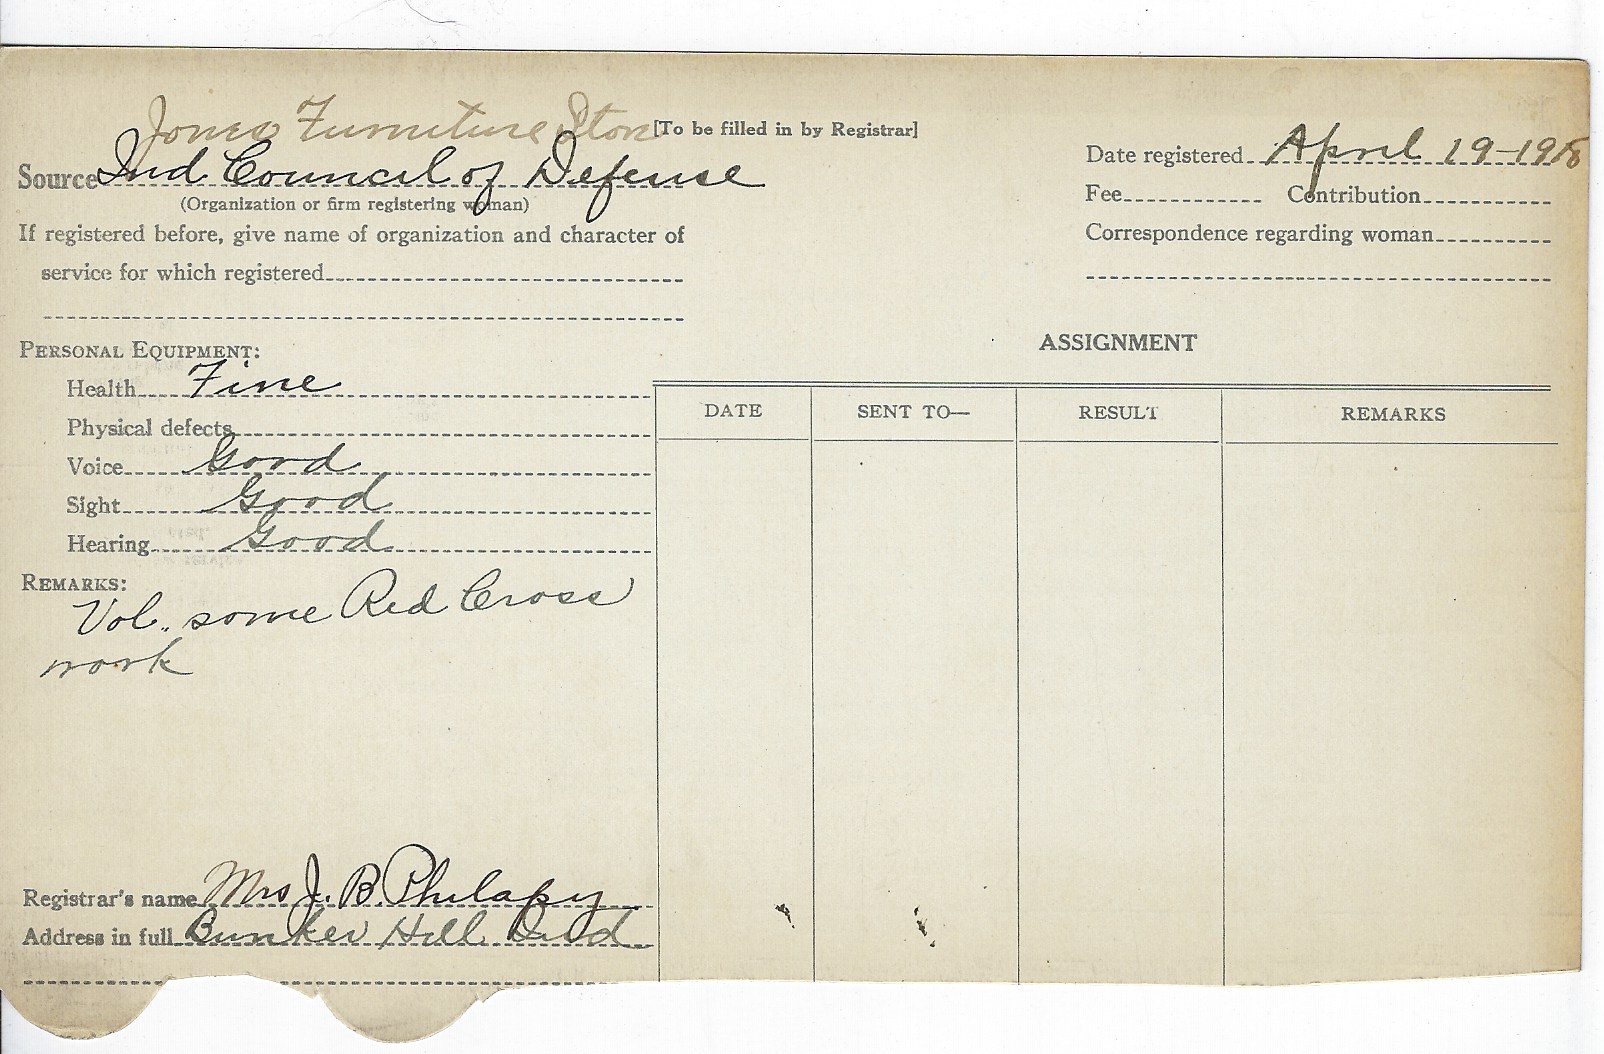 Jones Furniture Store
[To be filled in by Registrar]
Source Ind Council of Defense
(Organization or firm registering woman)
If registered before, give name of organization and character of
service for which registered
Date registered April 19-1918
Fee Contribution
Correspondence regarding woman
PERSONAL EQUIPMENT:
Health Fine
Physical defects
Voice Good
Sight Good
Hearing Good
REMARKS:
Vol. some Red Cross
work
Registrar's name Mrs J. B. Philapy
Address in full Bunker Hill Ind
ASSIGNMENT
DATE SENT TO— RESULT REMARKS